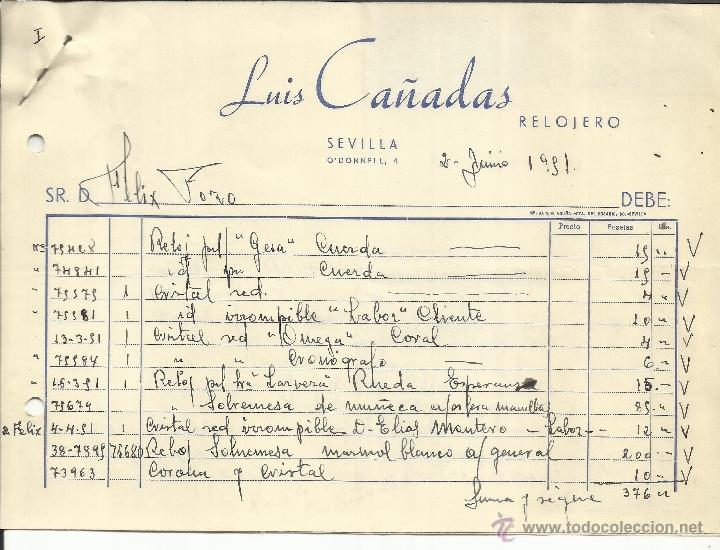 I
Luis Cañadas
RELOJERO
SEVILLA
O'DONNELL, 4
2- Junio 1951.
SR. D. Felix Pozo DEBE:
Precio Pesetas Cts.
Nº 75428 Reloj pul "Gesa" Cuerda 15 "
" 74841 id pul Cuerda 15 -
" 75575 1 Cristal red. 4 "
" 75581 1 id irrompible "Labor" Cliente 10 "
" 13-3-51 1 Cristal red "Omega" Coral 4 "
" 75584 1 " " Cronógrafo 6 -
" 16-3-51 1 Reloj pul Rueda 15 -
75674 " Sobremesa de muñeca 85 "
a Felix 4-4-51 1 Cristal red irrompible D. Elias Montero - Labor - 12 "
38-7895 75680 Reloj Sobremesa marmol blanco a/ general 200 "
73963 Corona y Cristal 10 "
Suma y sigue 376 "
www.todocoleccion.net